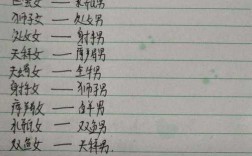 巨蟹女 —— 水瓶男
狮子女 —— 处女男
处女女 —— 射手男
天秤女 —— 摩羯男
天蝎女 —— 金牛男
射手女 —— 狮子男
摩羯女 —— 白羊男
水瓶女 —— 双鱼男
双鱼女 —— 天秤男.